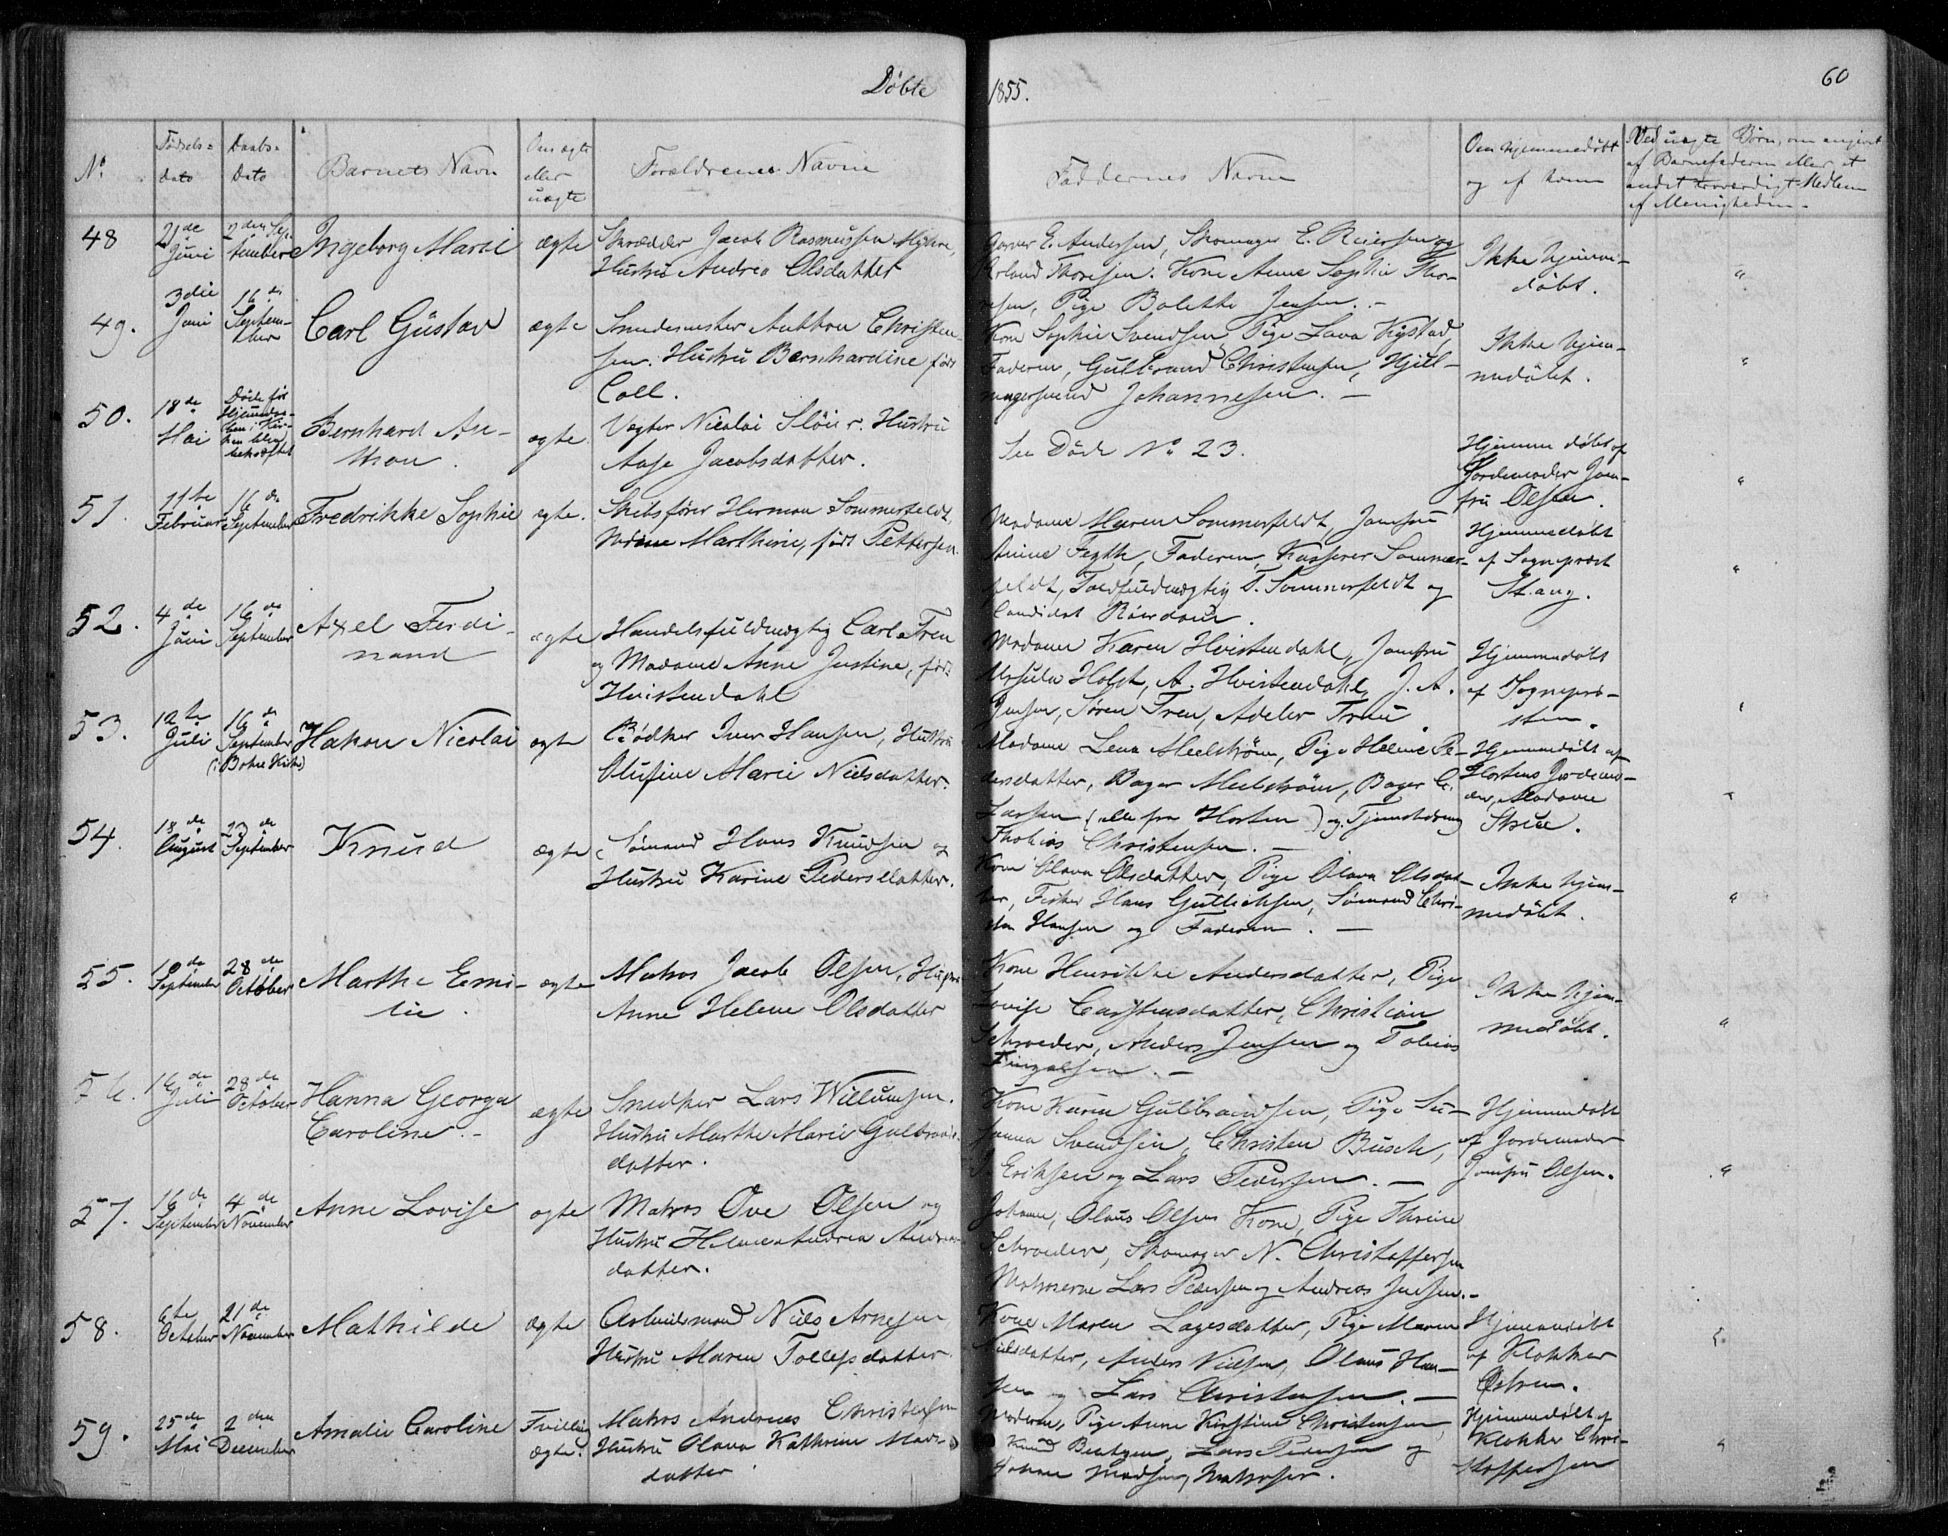 Døbte 1855. 60
No
Fødsels-
dato
Daabs-
Dato
Barnets Navn
Om ægte
eller
uægte
Forældrenes Navne
Faddernes Navne
Om hjemmedøbt
og af hvem
Ved uægte Børn, om angivet
af Barnefaderen eller et
andet troværdigt Medlem
af Menigheden.
48
21de
Juni
2den Sep-
tember
Ingeborg Marie
ægte
Skrædder Jacob Rasmussen Myhre,
Hustru Andrea Olsdatter
Garver E. Andersen, Skomager E. Reiersen og
Erland Thoresen. Kone Anne Sophie Tho-
resen, Pige Bolette Jensen. -
Ikke hjemme-
døbt.
"
49.
3die
Juni
16de
Septem-
ber
Carl Gustav
ægte
Smedemester Anthon Christen-
sen. Hustru Bernhardine født
Coll.
Kone Sophie Svendsen, Pige Lava
Faderen, Gulbrand Christensen,
Johannesen. -
Ikke hjem-
medøbt.
"
50.
18de
Mai
Døde før
Hjemmedaa-
ben i Kir-
ken blev
bekræftet
Bernhard An-
thon.
ægte
Vægter Nicolai Sløier. Hustru
Aase Jacobsdatter.
See Døde No 23.
Hjemmedøbt af
Jordemoder Jom-
fru Olsen.
"
51.
11te
Februar
16de
September
Fredrikke Sophie
ægte.
Skibsfører Herman Sommerfeldt,
Marthine, født Pettersen.
Madame Maren Sommerfeldt, Jomfru
Anine Fegth, Faderen, Kasserer Sommer-
feldt, Toldfuldmægtig T. Sommerfeldt og
Candidat
Hjemmedøbt
af Sogneprest
Stang.
"
52.
4de
Juni
16de
September
Axel Ferdi-
nand
ægte
Handelsfuldmægtig Carl Tren
og Madame Anne Justine, født
Hvistendahl
Madame Karen Hvistendahl, Jomfru
Ursula Holst, A. Hvistendahl, J. A.
Jensen, Søren Tren, Adeler Tren
Hjemmedøbt
af Sognepræ-
sten.
"
53.
12te
Juli
16de
September
(i Borre Kirke)
Hakon Nicolai
ægte
Bødker Iver Hansen, Hustru
Olufine Marie Nielsdatter.
Madame Lena Meelstrøm, Pige Helene Pe-
dersdatter, Bager Meelstrøm, Bager C.
Larsen (alle fra Horten) og Tjenestedreng
Thobias Christensen. -
Hjemmedøbt af
Hortens Jordemo-
der, Madame
"
54.
18de
August
23de
September
Knud
ægte
Sømand Hans Knudsen og
Hustru Karine Pedersdatter.
Kone Olava Olsdatter, Pige Olava Olsdat-
ter, Fisker Hans Gulliksen, Sømand Chri-
sten Hansen og Faderen. -
Ikke hjem-
medøbt.
"
55.
10de
September
28de
October
Marthe Emi-
lie.
ægte
Matros Jacob Olsen, Hustru
Anne Helene Olsdatter
Kone Henrikke Andersdatter, Pige
Lovise Carstensdatter, Christian
Schroeder, Anders Jensen og Tobias
Fingalsen. -
Ikke hjem-
medøbt.
"
56.
16de
Juli
28de
October
Hanna Georga
Caroline. -
ægte
Snedker Lars Willumsen.
Hustru Marthe Marie Gulbrands-
datter.
Kone Karen Gulbrandsen, Pige Su-
sanna Svendsen, Christen Busch,
Eriksen og Lars Pedersen. -
Hjemmedøbt
af Jordemoder
Jomfru Olsen.
"
57.
16de
September
4de
November
Anne Lovise
ægte
Matros Ove Olsen og
Hustru Helene Andrea Andreas-
datter.
Olaus Olsens Kone, Pige Thrine
Schroeder, Skomager N. Christoffersen
Matroserne Lars Pedersen og Andreas Jensen. -
58.
6te
October
21de
November
Mathilde
ægte
Arbeidsmand Niels Arnesen,
Hustru Maren Tollefsdatter
Kone Maren Lagesdatter, Pige Maren
Nielsdatter, Anders Nielsen, Olaus Han-
sen og Lars Christensen. -
Hjemmedøbt
af Klokker
"
59.
25de
Mai
2den
December
Amalie Caroline
Tvilling
ægte.
Matros Andreas Christensen
Hustru Olava Kathrine Mads-
datter
Moderen, Pige Anne Kirstine Christensen,
Knud Bentsen, Lars Pedersen og
Johan Madsen, Matroser.
Hjemmedøbt af
Klokker Chri-
stoffersen
"